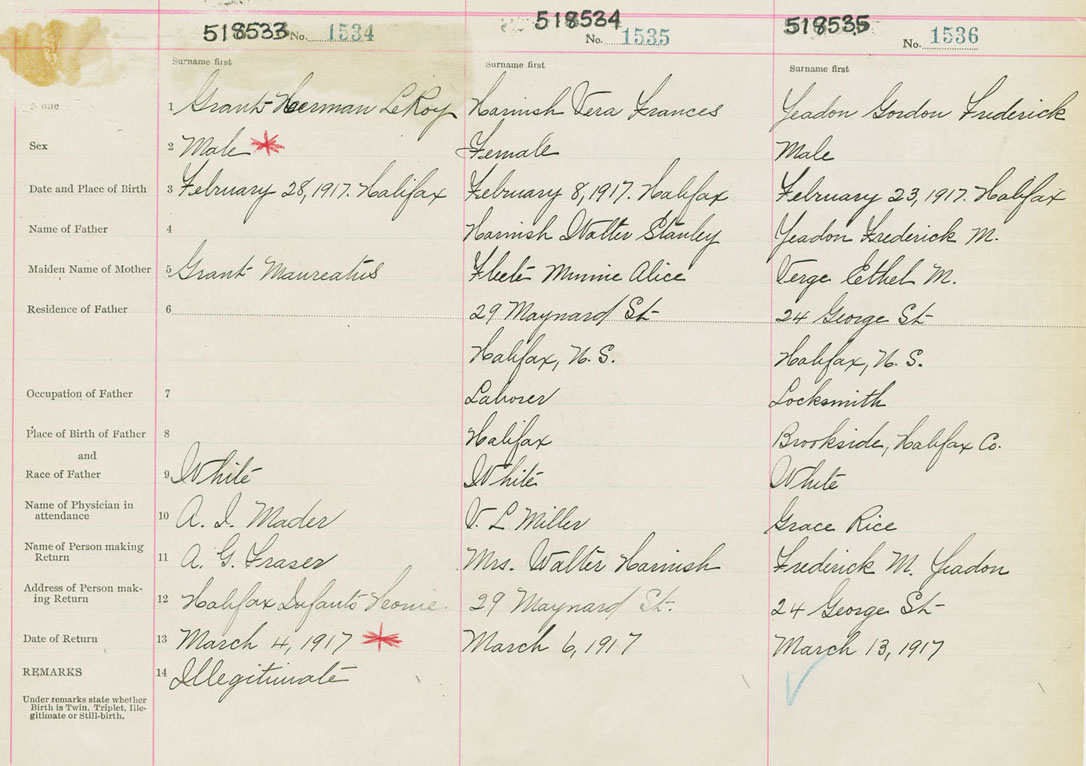 518533 No. 1534 518534 No. 1535 518535 No. 1536
Surname first Surname first Surname first
1 Grant Herman LeRoy Harnish Vera Frances Yeadon Gordon Frederick
Sex 2 Male Female Male
Date and Place of Birth 3 February 28, 1917. Halifax February 8, 1917. Halifax February 23, 1917. Halifax
Name of Father 4 Harnish Walter Stanley Yeadon Frederick M.
Maiden Name of Mother 5 Grant Minnie Alice Verge Ethel M.
Residence of Father 6 29 Maynard St 24 George St
Halifax, N.S. Halifax, N.S.
Occupation of Father 7 Laborer Locksmith
Place of Birth of Father 8 Halifax Brookside, Halifax Co.
and
Race of Father 9 White White White
Name of Physician in
attendance 10 A. I. Mader V. L Miller Grace Rice
Name of Person making
Return 11 A. G. Fraser Mrs. Walter Harnish Frederick M. Yeadon
Address of Person mak-
ing Return 12 Halifax Infants Home. 29 Maynard St. 24 George St
Date of Return 13 March 4, 1917 March 6, 1917 March 13, 1917
REMARKS 14 Illegitimate
Under remarks state whether
Birth is Twin, Triplet, Ille-
gitimate or Still-birth.